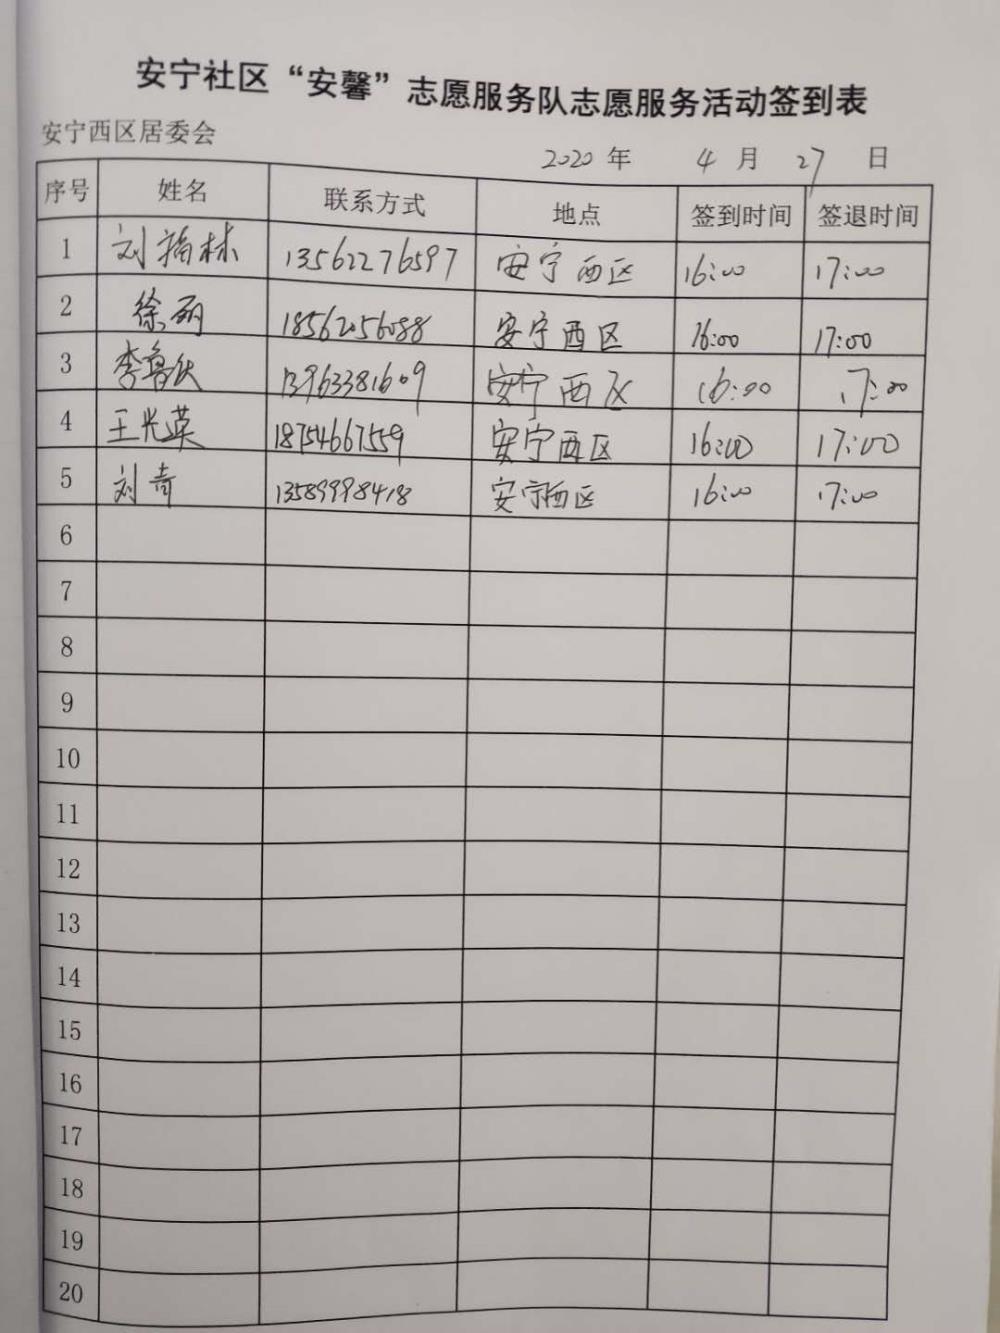 安宁社区“安馨”志愿服务队志愿服务活动签到表
安宁西区居委会
2020 年 4 月 27 日
序号 姓名 联系方式 地点 签到时间 签退时间
1 刘 林 13562276597 安宁西区 16:00 17:00
2 徐丽 18562056088 安宁西区 16:00 17:00
3 李鲁 13963381609 安宁西区 16:00 17:00
4 王光英 18754667559 安宁西区 16:00 17:00
5 刘奇 13589998418 安宁西区 16:00 17:00
6
7
8
9
10
11
12
13
14
15
16
17
18
19
20